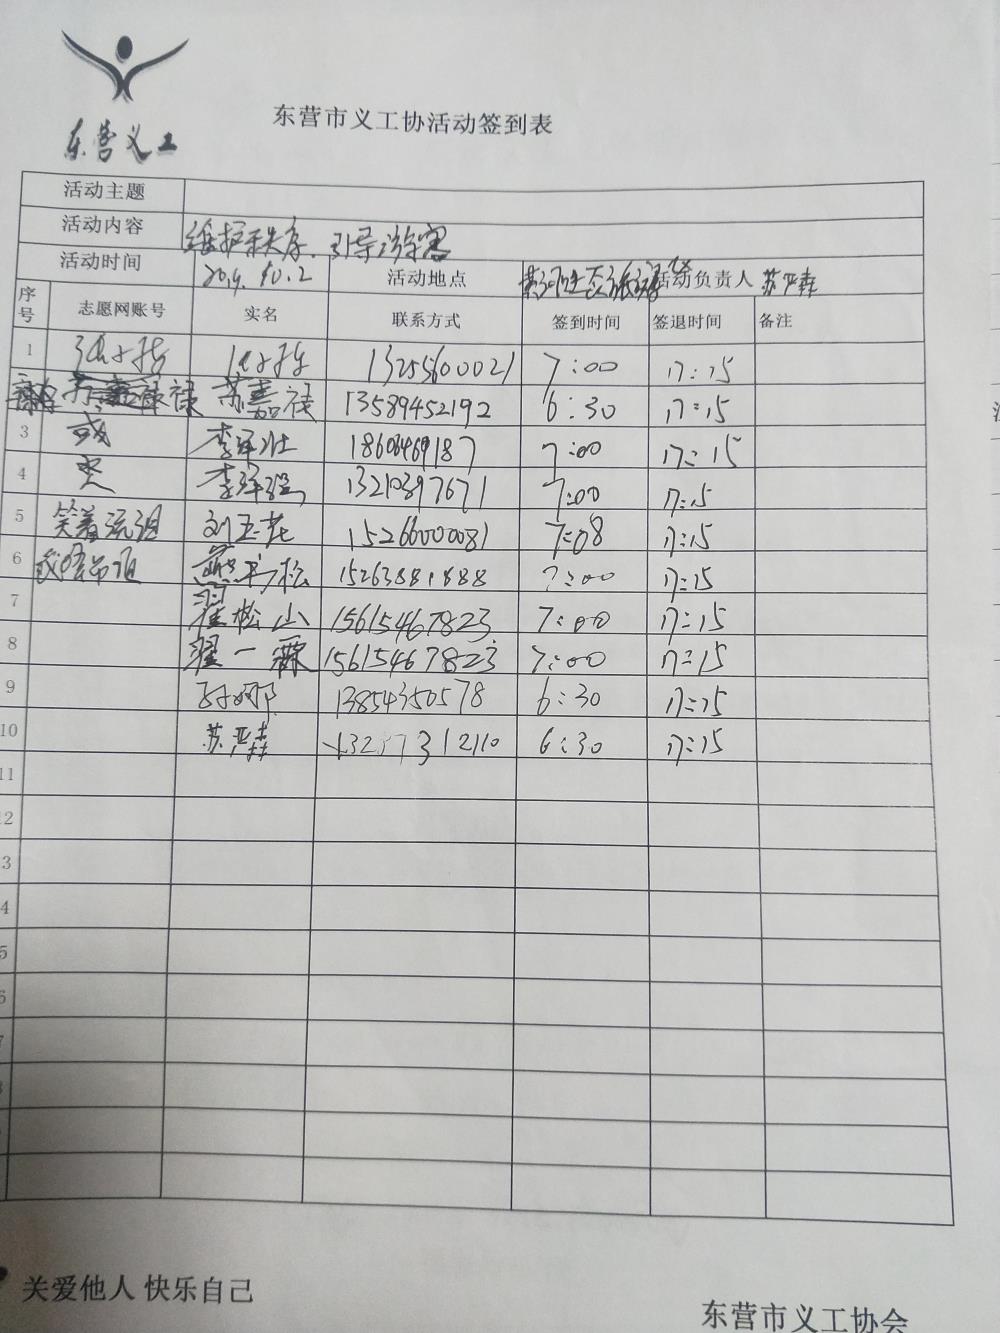 东营义工
东营市义工协活动签到表
活动主题
活动内容 维护秩序、引导游客
活动时间 10.2 活动地点 活动负责人 苏严森
序号 志愿网账号 实名 联系方式 签到时间 签退时间 备注
1 13255600021 7:00 17:15
禄 苏嘉禄 13589452192 6:30 17:15
3 李军壮 18606469187 7:00 17:15
4 李军强 13210397671 7:00 17:15
5 笑着流泪 刘玉花 15266000081 7:08 17:15
6 熊广松 15263881888 7:00 17:15
7 翟松山 15615467823 7:00 17:15
8 翟一霖 15615467823 7:00 17:15
9 孙娜 13854350578 6:30 17:15
10 苏严森 6:30 17:15
11
2
3
4
5
关爱他人 快乐自己
东营市义工协会